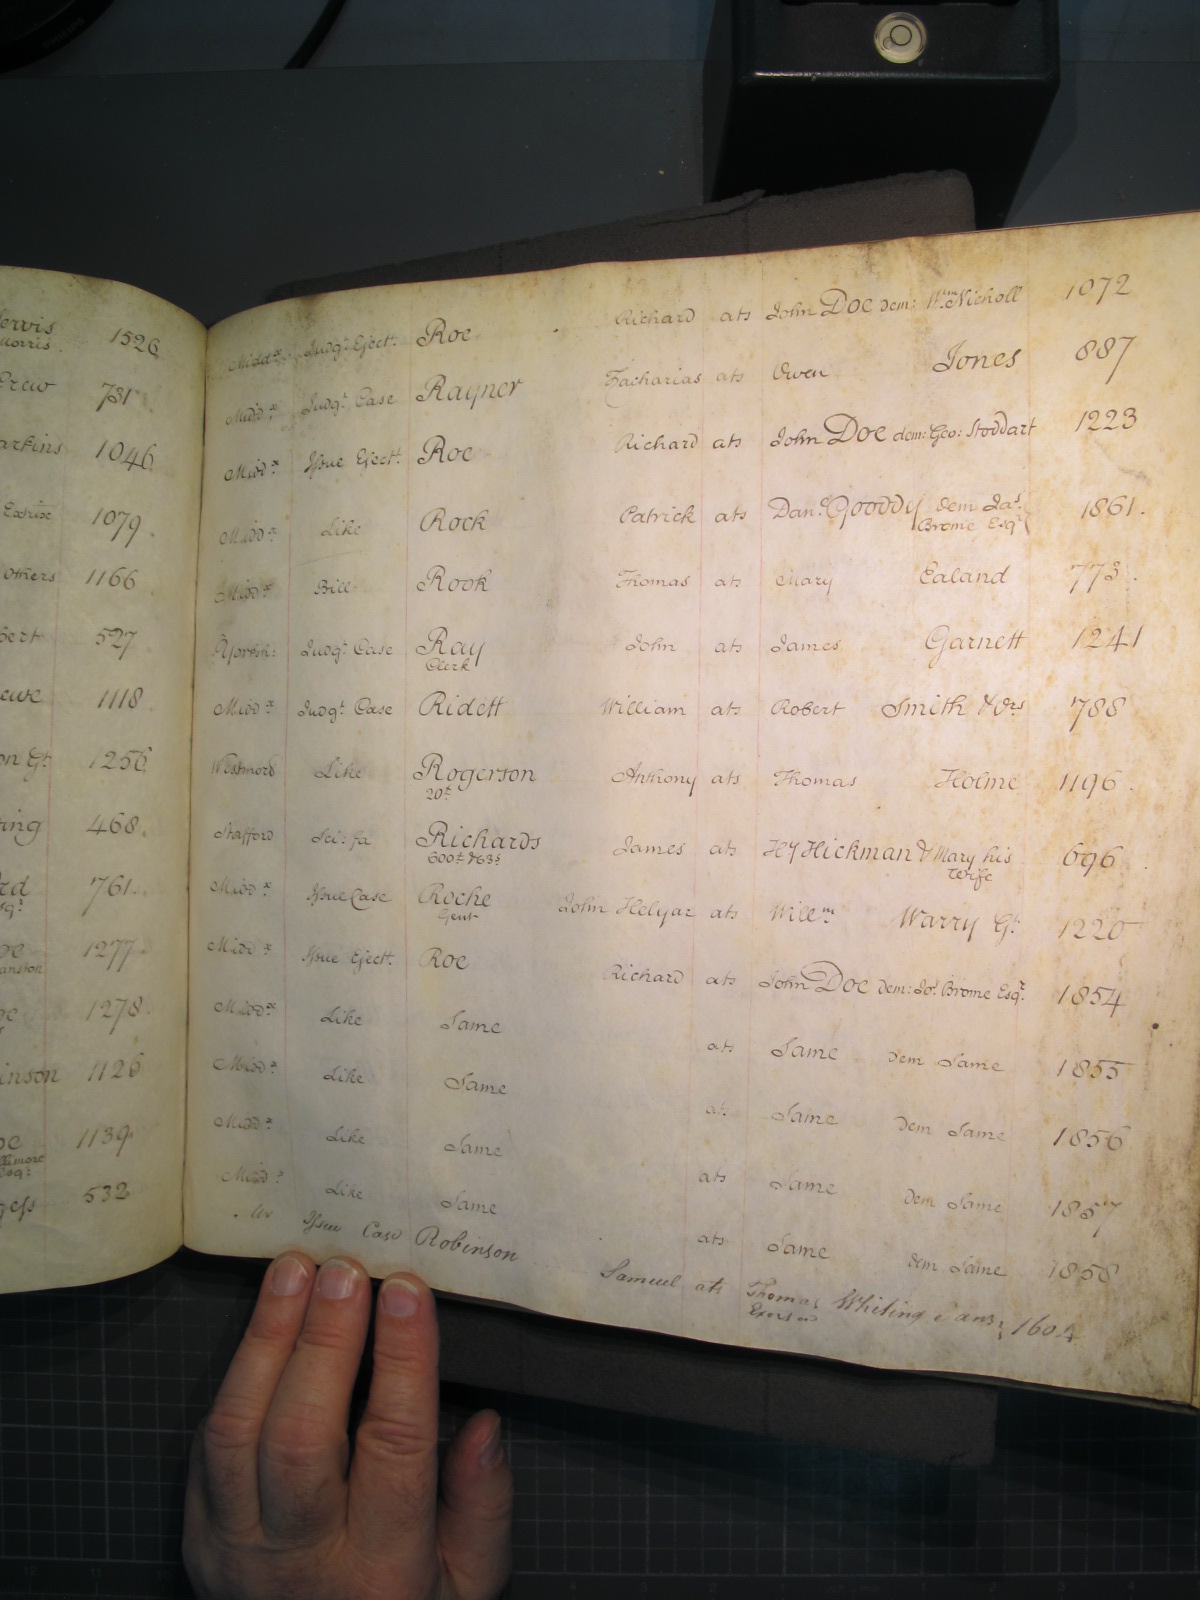 ervis
orris 1526
Crew 731
arkins 1046
Extrix 1079
others 1166
bert 527
ewe 1118
on Gt: 1256
ting 468
rd
sqr 761
oe
anston 1277
oe 1278
inson 1126
oe
llimore
Esqr: 1139
gess 532
Midd:x Judgt: Eject: Roe Richard ats John Doe dem: Wm: Nicholl 1072
Midd:x Judgt: Case Rayner Zacharias ats Owen Jones 887
Midd:x Issue Eject: Roe Richard ats John Doe dem: Geo: Stoddart 1223
Midd:x Like Rock Patrick ats Danl: Gooddy dem Jas:
Brome Esqr 1861.
Midd:x Bill Rook Thomas ats Mary Ealand 773.
Yorksh: Judgt: Case Ray John ats James Garnett 1241
Clerk
Midd:x Judgt: Case Ridett William ats Robert Smith & Ors 788
Westmord Like Rogerson Anthony ats Thomas Holme 1196.
20£
Stafford Sci: fa Richards James ats Hy Hickman & Mary his
wife 696.
600£ & 63s
Midd:x Issue Case Roche John Helyar ats Willm: Warry Gt: 1220
Gent
Midd:x Issue Eject: Roe Richard ats John Doe dem: Jos: Brome Esqr: 1854
Midd:x Like Same ats Same dem Same 1855
Midd:x Like Same at: Same dem Same 1856
Midd:x Like Same ats Same dem Same 1857
Midd:x Like Same ats Same dem Same 1858
Issue Case Robinson Samuel ats Thomas Whiting & anr: 1604